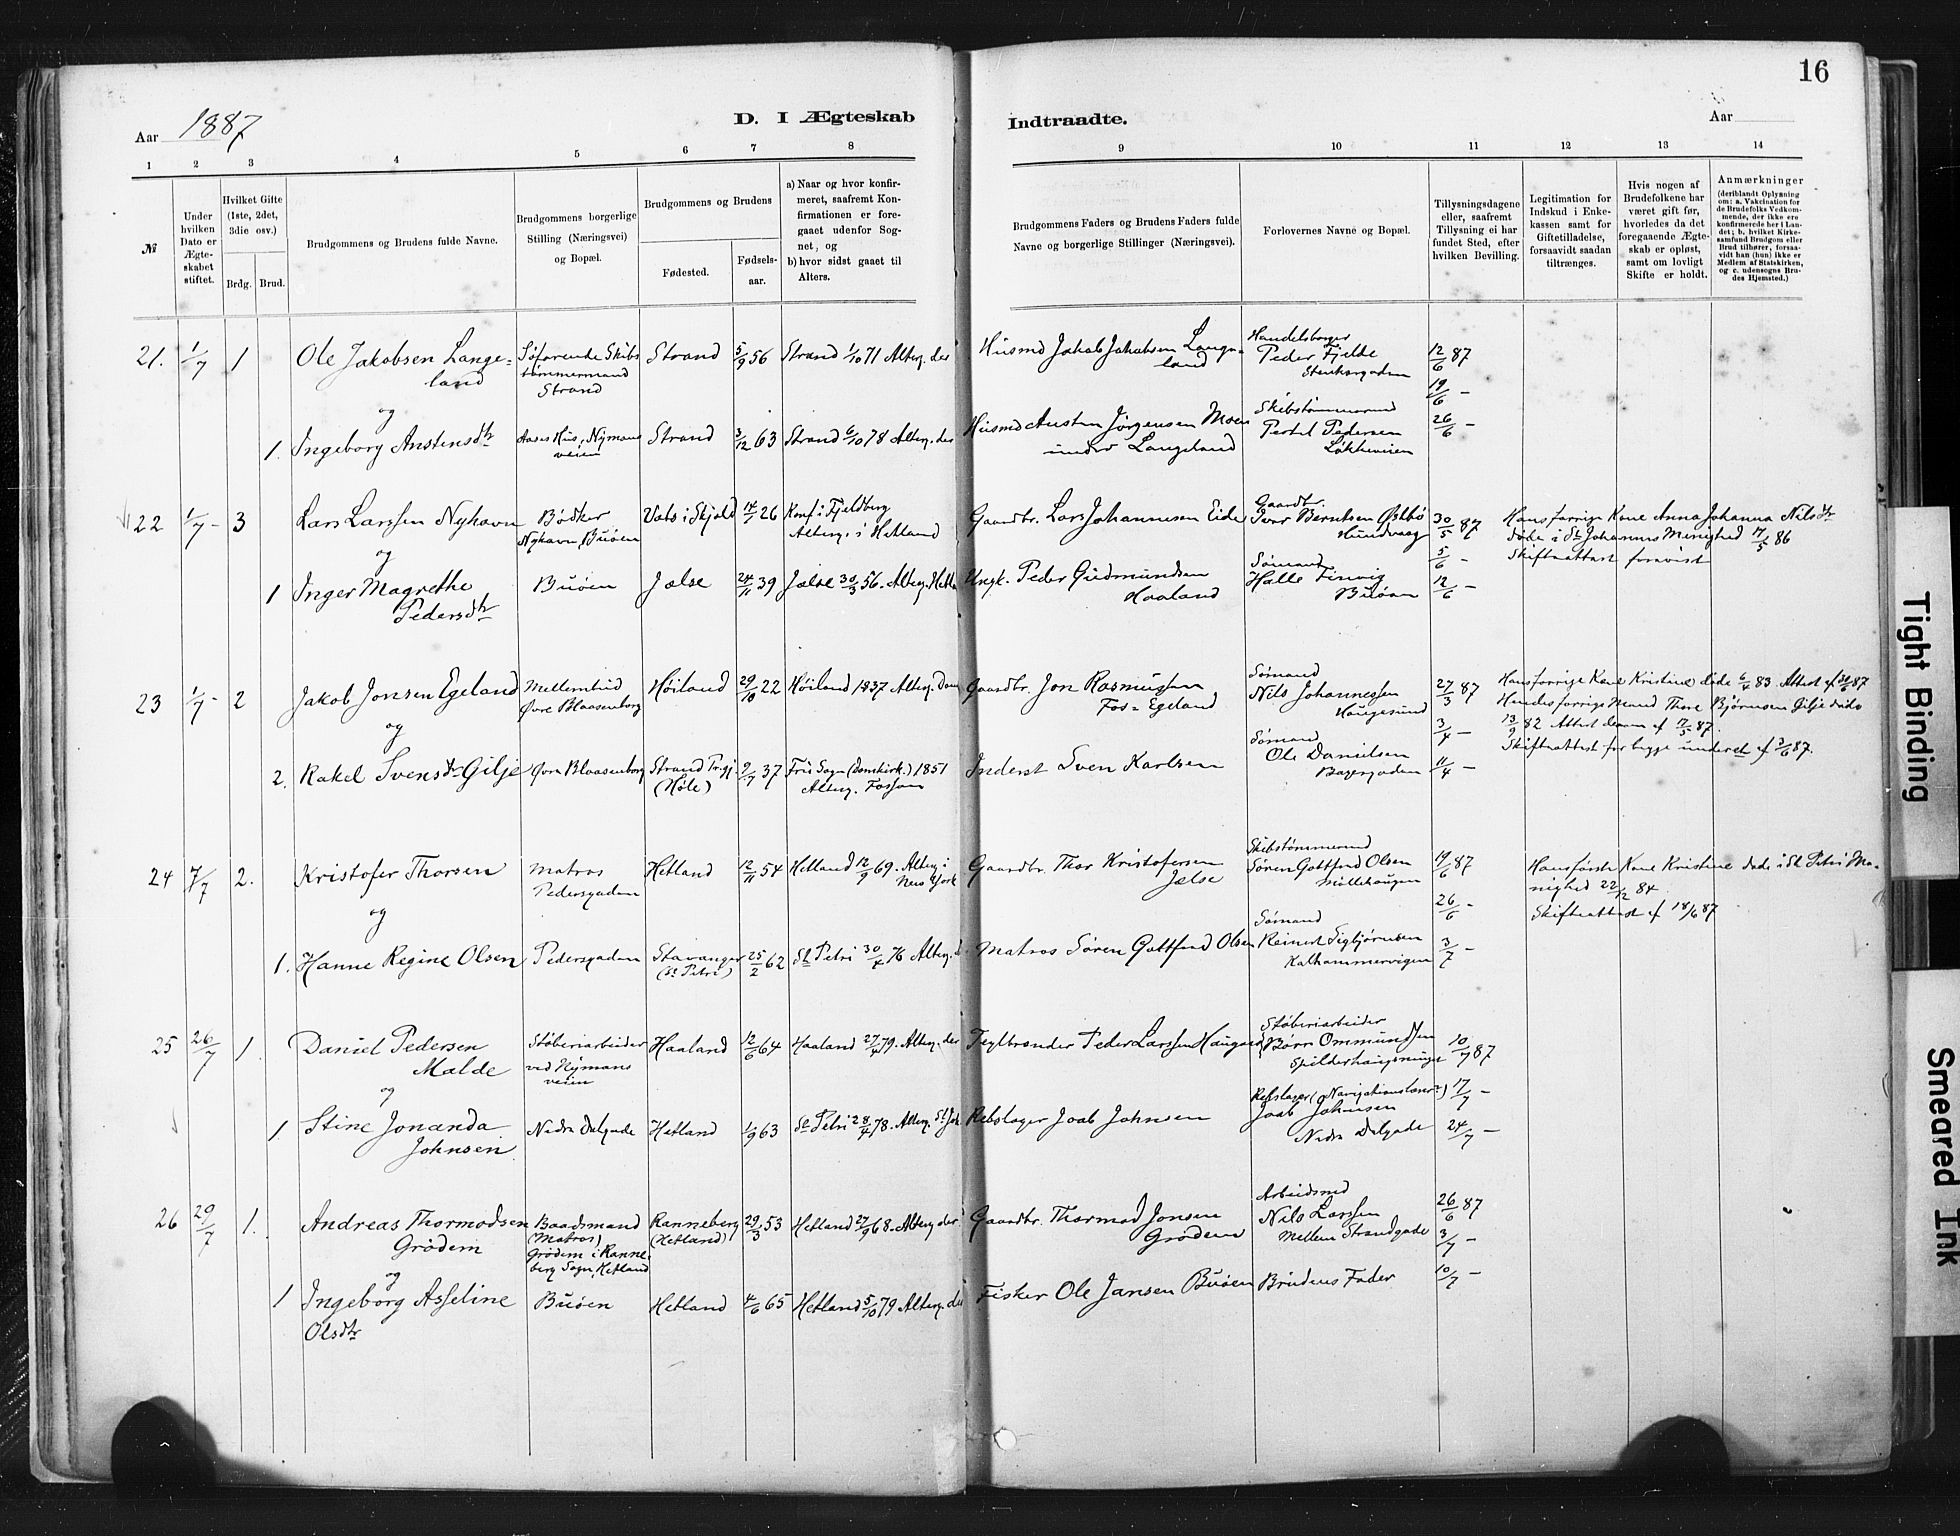 16
Aar 1887
D. I Ægteskab
Indtraadte.
Aar
1 2 3 4 5 6 7 8 9 10 11 12 13 14
№
Under hvilken Dato er Ægteskabet stiftet.
Hvilket Gifte (1ste, 2det, 3die osv.)
Brdg. Brud.
Brudgommens og Brudens fulde Navne.
Brudgommens borgerlige Stilling (Næringsvei) og Bopæl.
Brudgommens og Brudens
Fødested.
Fødselsaar.
a) Naar og hvor konfirmeret, saafremt Konfirmationen er foregaaet udenfor Sognet, og
b) hvor sidst gaaet til Alters.
Brudgommens Faders og Brudens Faders fulde Navne og borgerlige Stillinger (Næringsvei).
Forlovernes Navne og Bopæl.
Tillysningsdagene eller, saafremt Tillysning ei har fundet Sted, efter hvilken Bevilling.
Legitimation for Indskud i Enkekassen samt for Giftetilladelse, forsaavidt saadan tiltrænges.
Hvis nogen af Brudefolkene har været gift før, hvorledes da det foregaaende Ægteskab er opløst, samt om lovligt Skifte er holdt.
Anmærkninger
(deriblandt Oplysning om: a. Vakcination for de Brudefolks Vedkommende, der ikke ere konfirmerede her i Landet; b. hvilket Kirkesamfund Brudgom eller Brud tilhører, forsaavidt han (hun) ikke er Medlem af Statskirken, og c. udensogns Brudes Hjemsted.)
21. 1/7 1 Ole Jakobsen Langeland Søfarende Skibstømmermand Strand Strand 5/9 56 Strand 1/10 71 Alterg. der Husmd Jakob Jakobsen Langeland Handelsborger Peder Fjelde 12/6 87
19/6 –
og
1. Ingeborg Anstensdtr Aases Hus, Nymansveien Strand 3/12 63 Strand 6/10 78 Alterg. der Husmd Austen Jørgensen Moen under Langeland Skibstømmermd Pertel Pedersen Løkkeveien 26/6 –
22 1/7 – 3 Lars Larssen Nyhavn Bødker Nyhavn, Buøen Vats i Skjold 14/7 26 Konf. i Fjeldberg Alterg. i Hetland Gaardbr. Lars Johannesen Eide Gaardbr. Berntsen Østbø Hundvaag 30/5 87 Hans forrige Kone Anna Johanna Nilsdtr døde i St. Johannes Menighed 17/5 86
Skifteattest forevist
5/6 –
og
1 Inger Magrethe Pedersdtr Buøen Jælse 24/11 39 Jælse 30/3 56. Alterg. Hetla Ungk. Peder Gudmundsen Haaland Sømand Halle Buøen 12/6 –
23 1/7 – 2 Jakob Jonsen Egeland Mellembud Øvre Blaasenborg Høiland 29/10 22 Høiland 1837 Alterg. Dom Gaardbr. Jon Rasmussen Fos-Egeland Sømand Nils Johannessen Haugesund 27/3 87 Hans forrige Kone Kristine døde 6/4 83. Attest af 30/6 87
Hendes forrige Mand Thore Bjørnsen Gilje døde 13/9 82 Attest derom af 17/5 87.
Skifteattest for begge underet af 3/6 87.
3/4 –
og
2. Rakel Svensdtr Gilje Øvre Blaasenborg Strand Prgj. (Høle) 9/7 37 Frue Sogn (Domkirk.) 1851 Alterg. Fossan Inderst Sven Karlsen Sømand Ole Danielsen Bagergaden 11/4 –
24 7/7 2. Kristofer Thorsen Matros Pedersgaden Hetland 12/11 54 Hetland 12/9 69. Alterg. i New York Gaardbr. Thor Kristofersen Jælse Skibstømmermd Søren Gottfred Olsen Møllehaugen 19/6 87 Hans første Kone Kristine døde i St. Petri Menighed 22/12 84.
Skifteattest af 18/6 87
26/6 –
og
1. Hanne Regine Olsen Pedersgaden Stavanger (St Petri) 25/2 62 St Petri 30/4 76 Alterg. d. Matros Søren Gottfred Olsen Sømand Reinert Sigbjørnsen Kalhammervigen 3/7 –
25 26/7 1. Daniel Pedersen Malde Støberiarbeider ved Nymansveien Haaland 12/6 64 Haaland 27/4 79. Alterg. der Teglbrænder Peder Larssen Haugen Støberiarbeider Børre Ommundsen Spilderhaugsmuge 10/7 87
og
1. Stine Jonanda Johnsen Nedre Dalgade Hetland 1/9 63 St Petri 28/4 78. Alterg. St Joh Rebslager Joab Johnsen Rebslager (Navigationslærer) Joab Johnsen Nedre Dalgade 17/7 –
24/7 –
26 29/7 1. Andreas Thormodsen Grødem Baadsmand (Matros) Grødem i Ranneberg Sogn, Hetland Ranneberg (Hetland) 29/3 53 Hetland 27/9 68. Alterg. der Gaardbr. Thormod Jonsen Grødem Arbeidsmd Nils Larssen Mellem Strandgade 26/6 87
3/7 –
og
1 Ingeborg Asseline Olsdtr Buøen Hetland 4/6 65 Hetland 5/10 79 Alterg. der Fisker Ole Jansen Buøen Brudens Fader 10/7 –
Tight Binding
Smeared Ink